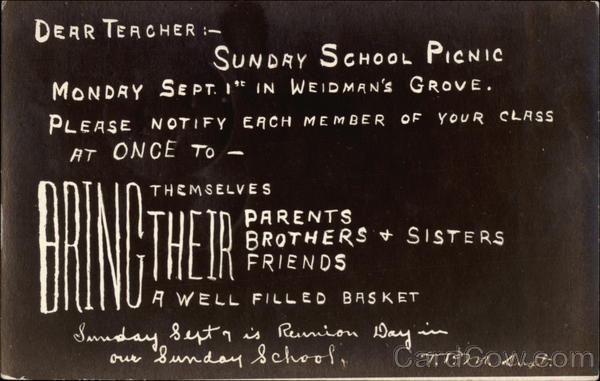 DEAR TEACHER:–
SUNDAY SCHOOL PICNIC
MONDAY SEPT. 1ST IN WEIDMAN'S GROVE.
PLEASE NOTIFY EACH MEMBER OF YOUR CLASS
AT ONCE TO –
BRING THEMSELVES
THEIR PARENTS
BROTHERS + SISTERS
FRIENDS
A WELL FILLED BASKET
Sunday Sept 7 is Reunion Day in
our Sunday School.
CardCow.com